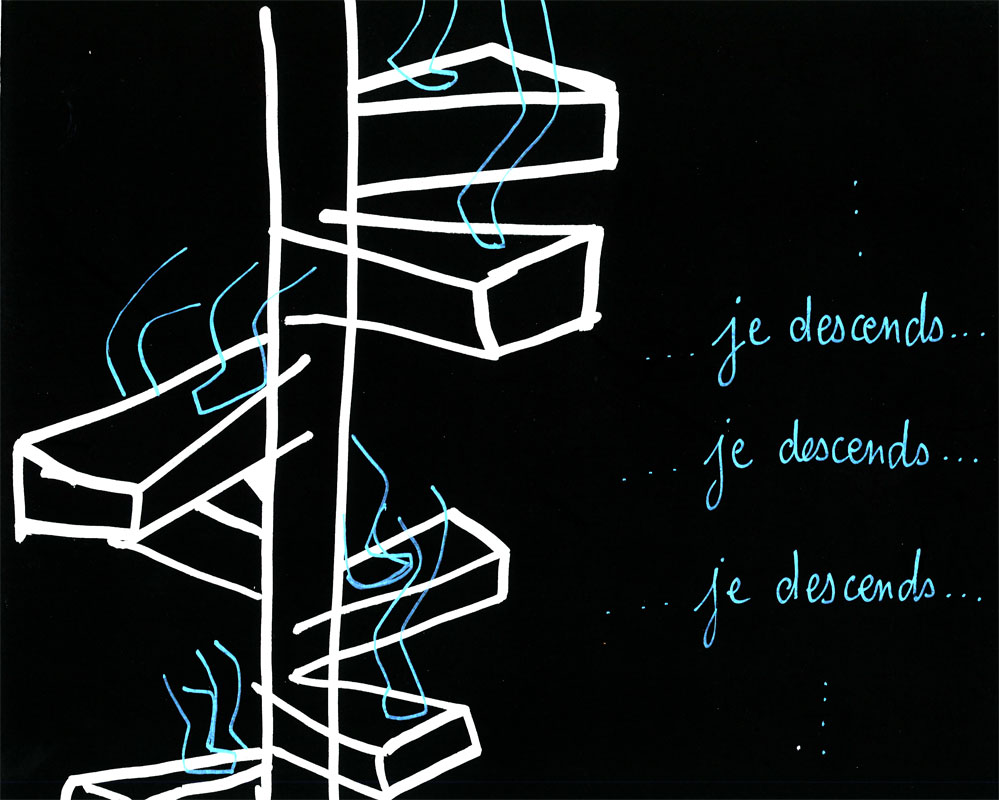 .... je descends...
... je descends...
.... je descends...